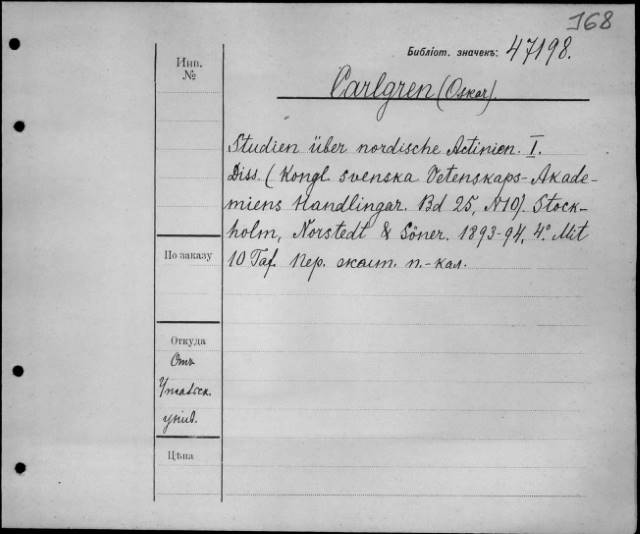 168
Библіот. значекъ: 47198.
Инв.
№
Carlgren (Oskar).
Studien über nordische Actinien. I.
Diss. (Kongl. svenska Vetenskaps-Akade-
miens Handlingar. Bd 25, №10). Stock-
holm, Norstedt & Söner. 1893-94, 4° Mit
10 Taf. Пер. экзт. п.-кал.
По заказу
Откуда
Отъ
Упсальск.
унив.
Цѣна